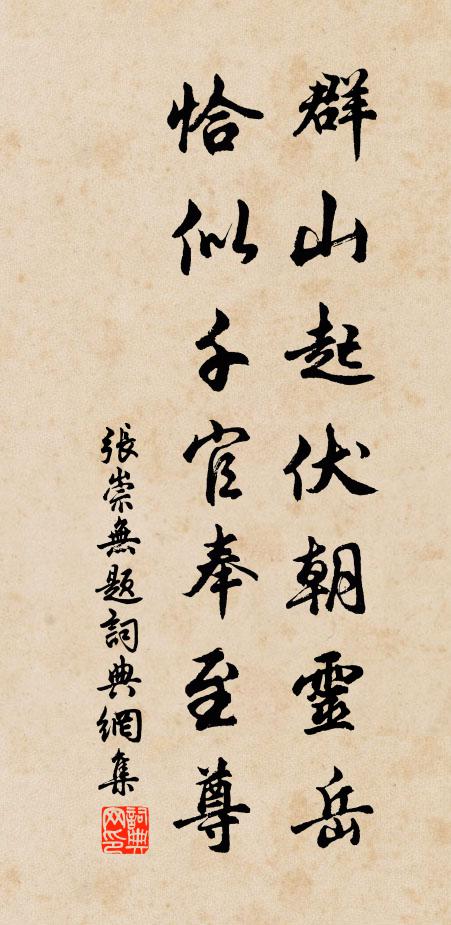 群山起伏朝靈岳
恰似千官奉至尊
張崇無題詞典網集
詞典网印